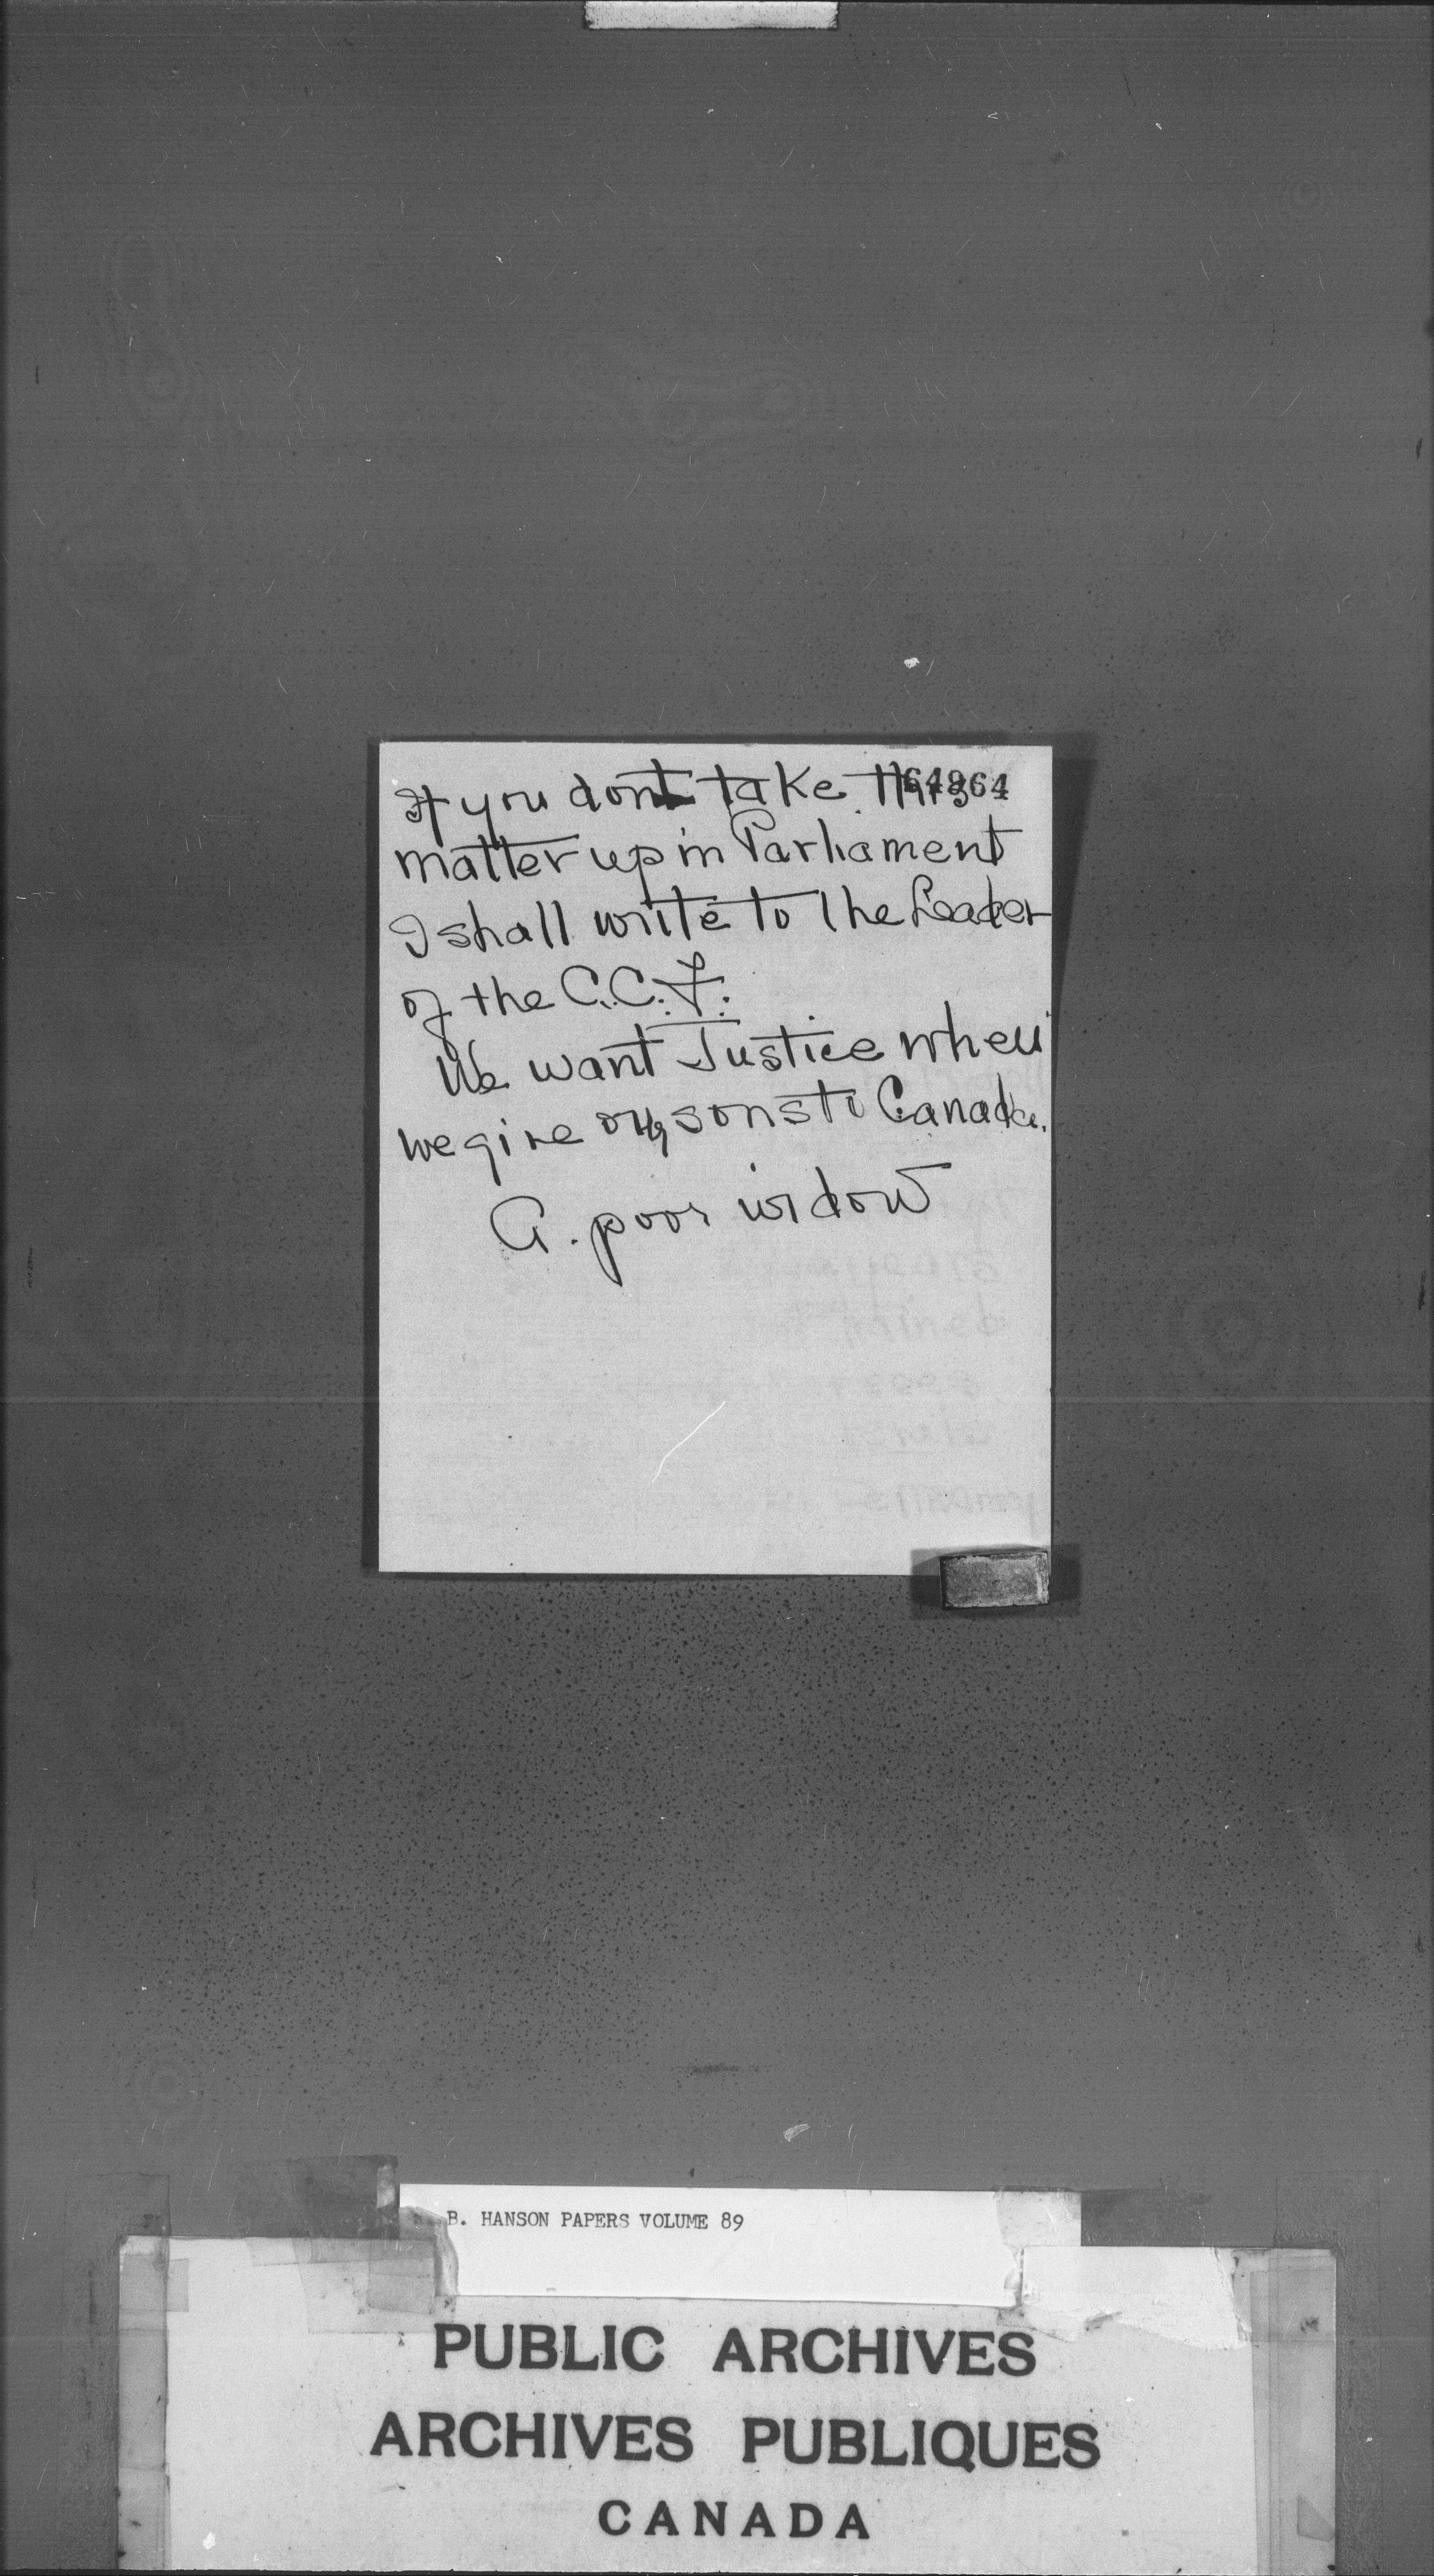 If you dont take this 64964
matter up in Parliament
I shall write to the Leader
of the C.C.F.
We want Justice when
we give our sons to Canada.
A. poor widow
B. HANSON PAPERS VOLUME 89
PUBLIC ARCHIVES
ARCHIVES PUBLIQUES
CANADA